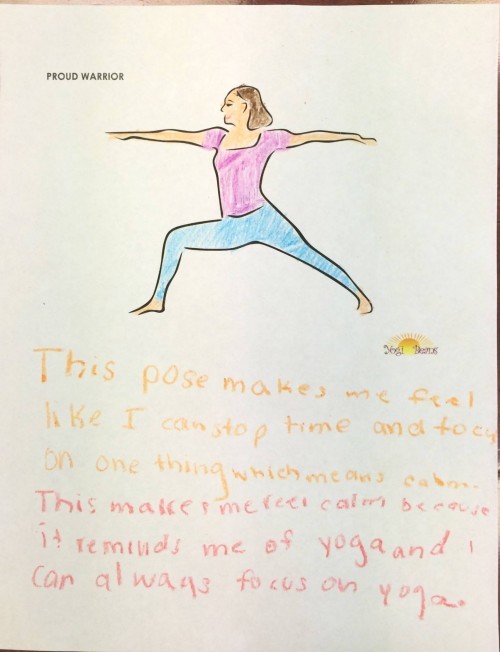 PROUD WARRIOR
Yogi Beans
This pose makes me feel
like I can stop time and focu
on one thing which means calm.
This makes me feel calm because
it reminds me of yoga and I
can always focus on yoga.